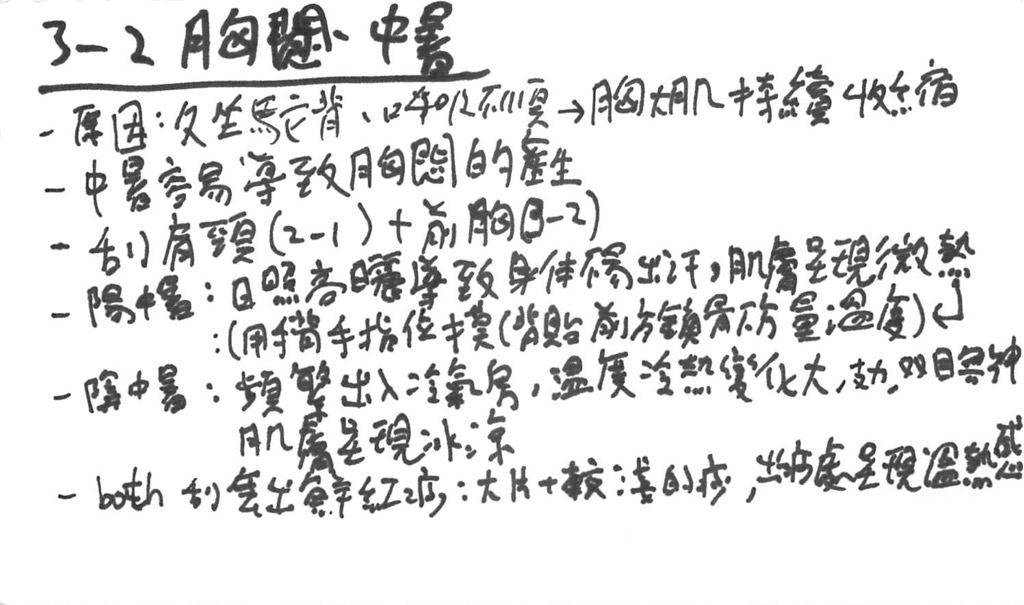 3-2 胸悶、中暑
- 原因:久坐駝背、呼吸不順→胸大肌持續收縮
- 中暑容易導致胸悶的產生
- 刮肩頸(2-1)+前胸(3-2)
- 陽中暑:日照容曬導致身体傷出汗,肌膚呈現微熱
:(用手背手指位摸(背貼前方鎖骨下方量溫度)↲
- 陰中暑:頻繁出入冷氣房,溫度冷熱變化大,
肌膚呈現冰涼
- both 刮會出鮮紅痧:大片+較淺的痧,出痧處呈現溫熱感